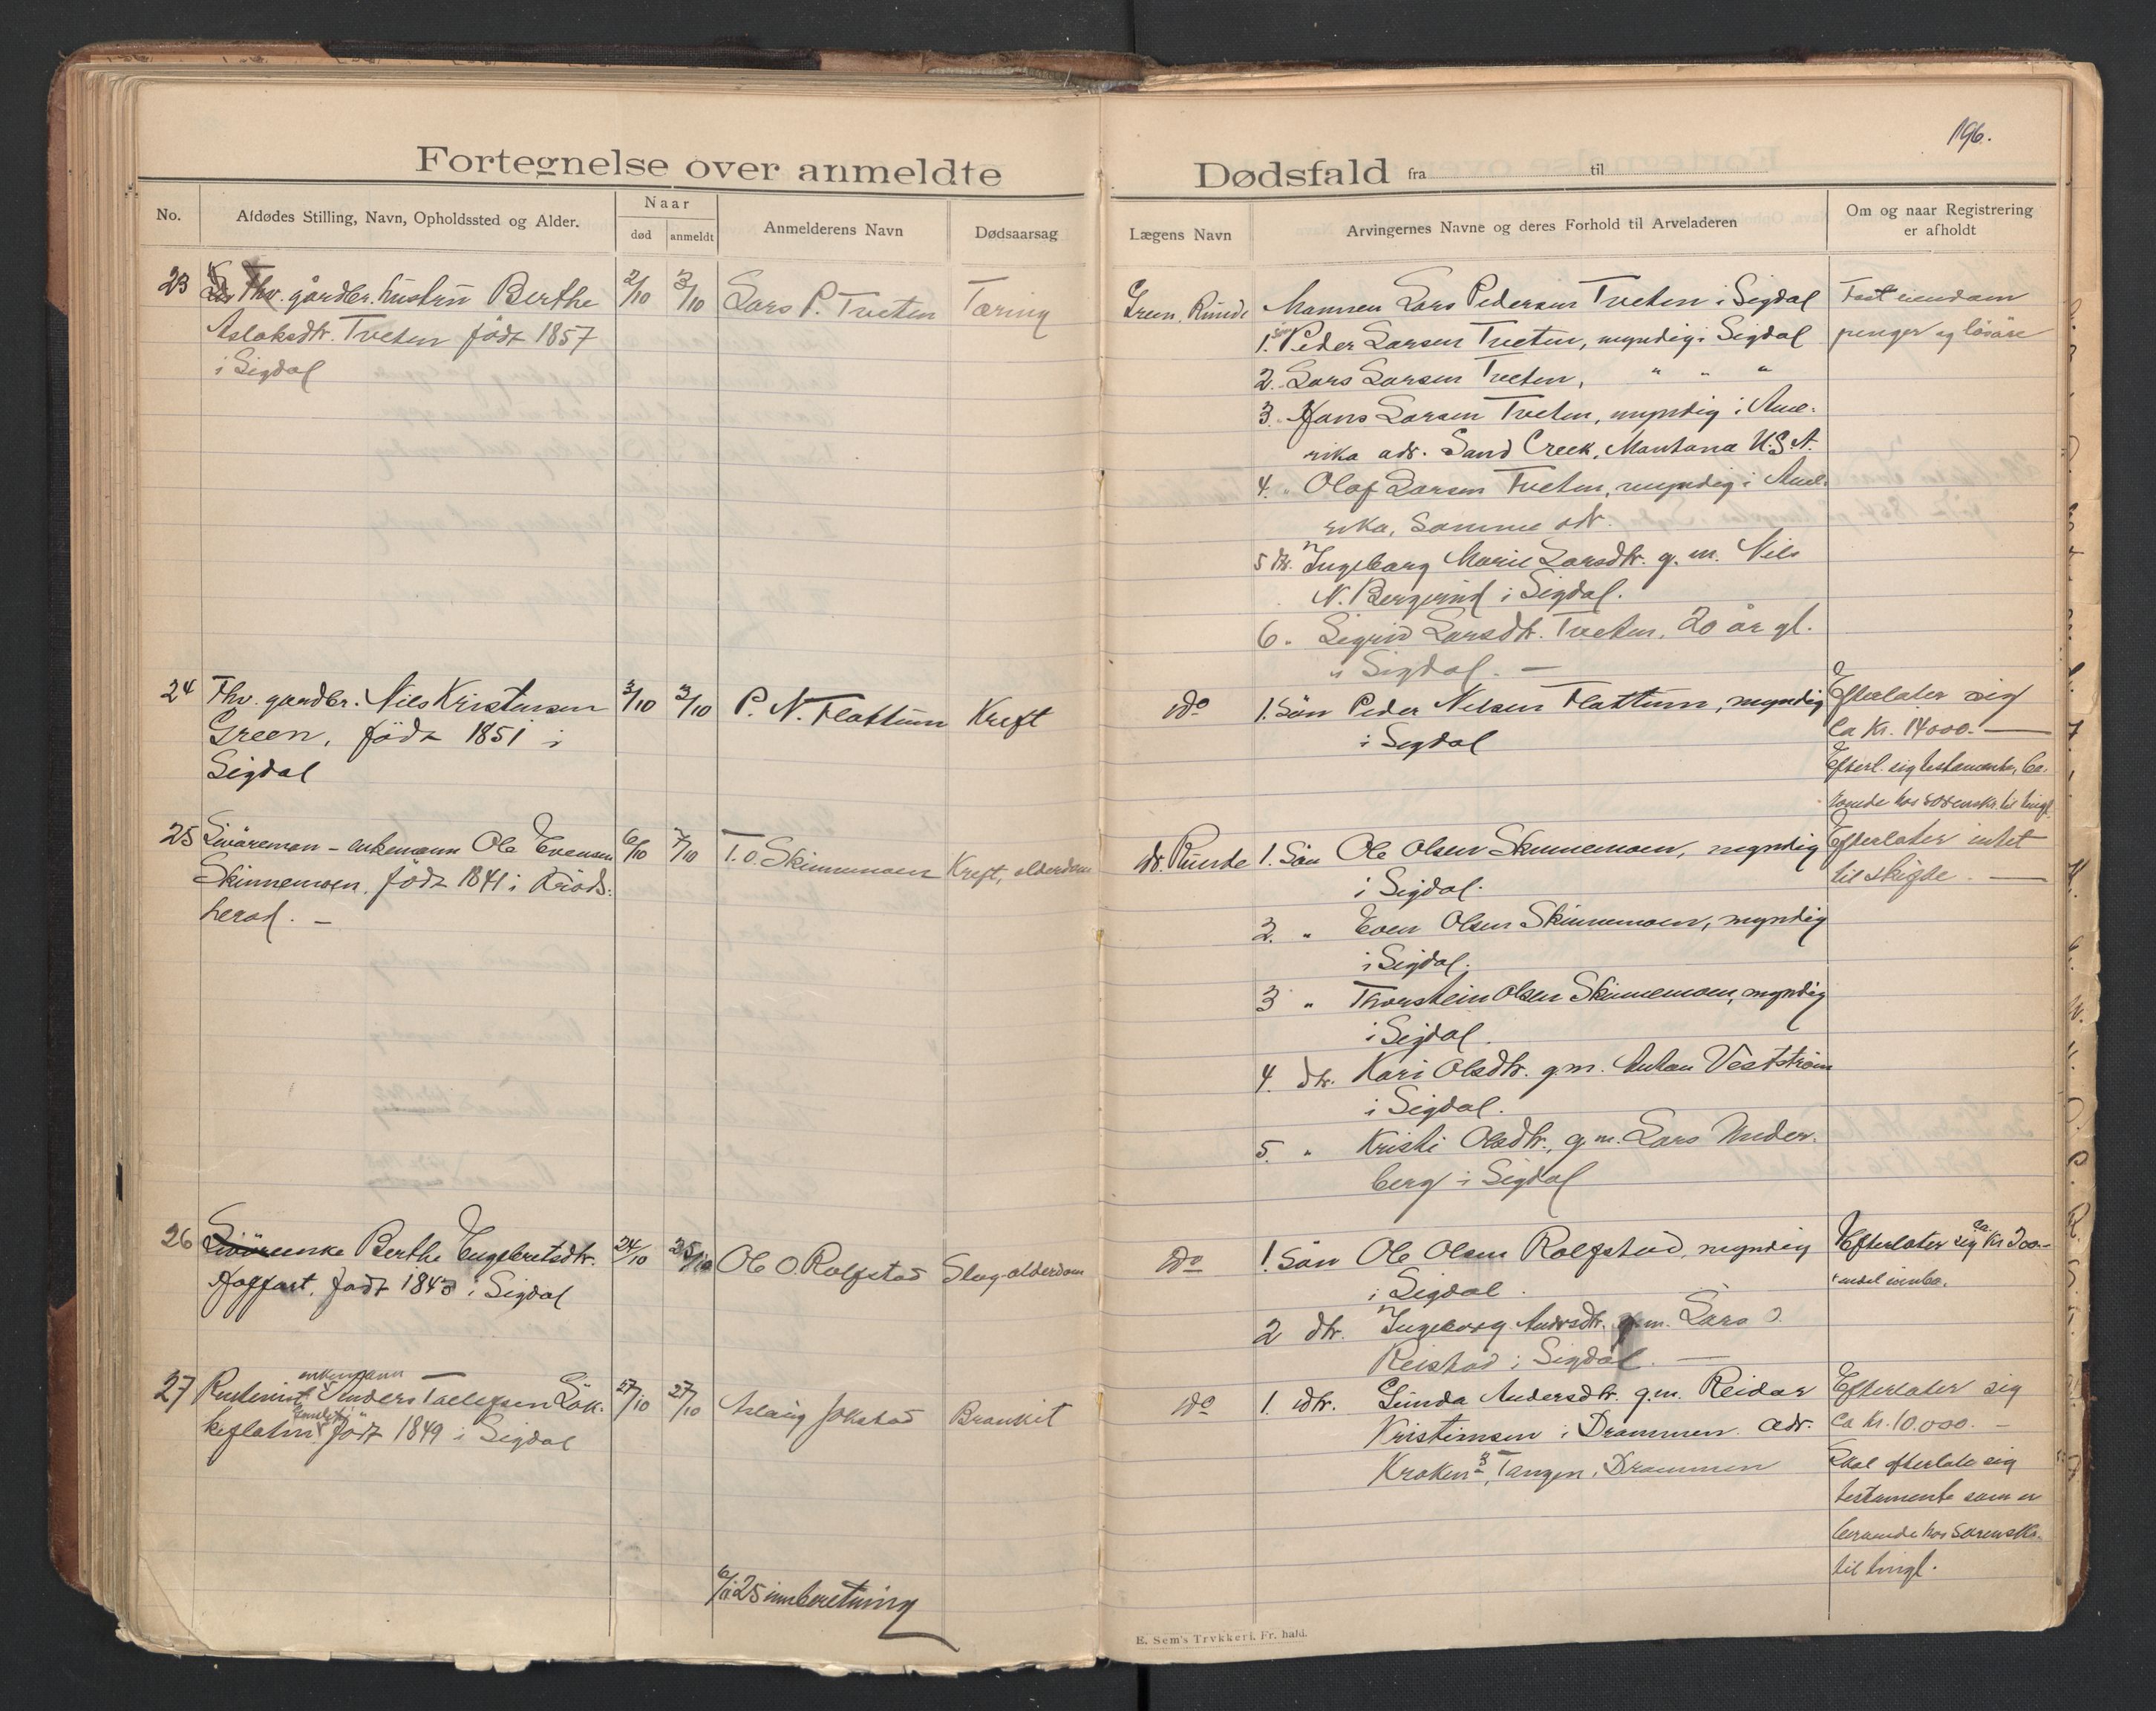 196.
Fortegnelse over anmeldte Dødsfald fra til
No.
Afdødes Stilling, Navn, Opholdssted og Alder.
Naar
død
anmeldt
Anmelderens Navn
Dødsaarsag
Lægens Navn
Arvingernes Navne og deres Forhold til Arveladeren
Om og naar Registrering
er afholdt
23 Fhv. gårdbr. hustru Berthe
Aslaksdtr. Tveten født 1857
i Sigdal
2/10
3/10
Lars P. Tveten
Tæring
Runde
Mannen Lars Pedersen Tveten i Sigdal
1. Søn Peder Larsen Tveten, myndig i Sigdal
2. Lars Larsen Tveten, " " "
3. " Hans Larsen Tveten, myndig i Ame-
rika adr. Sand Creek, Montana U.S.A.
4. " Olaf Larsen Tveten, myndig i Ame-
rika, samme adr.
5 dtr. Ingeborg Marie Larsdtr. g. m. Nils
N. i Sigdal.
6 " Sigrid Larsdtr. Tveten, 20 år gl.
i Sigdal. —
Fast eiendom
penger og løsøre
24 Fhv. gardbr. Nils Kristensen
Green, født 1851 i
Sigdal
3/10
3/10
P. N. Flattum
Kreft
do
1. Søn Peder Nilsen Flattum, myndig
i Sigdal
Efterlater sig
ca Kr. 14000. —
Efterl. sig testamente, be-
roende hos sorenskr. til tingl.
25 Livøremon - enkemann Ole Evensen
Skinnemoen, født 1841 i Krøds-
herad. —
6/10
7/10
T. O. Skinnemoen
Kreft, alderdom
dr. Runde
1. Søn Ole Olsen Skinnemoen, myndig
i Sigdal.
2. " Even Olsen Skinnemoen, myndig
i Sigdal.
3 " Thorstein Olsen Skinnemoen, myndig
i Sigdal.
4. dtr. Kari Olsdtr. g. m. Anton Veststrøm
i Sigdal.
5. " Kristi Olsdtr., g. m. Lars Under-
berg i Sigdal
Efterlater intet
til skifte. —
26 Berthe Engebretsdtr.
født 184 i Sigdal
24/10
25/10
Ole O. Rolfstad
Slag-alderdom
do
1. Søn Ole Olsen Rolfstad, myndig
i Sigdal.
2 dtr. Ingeborg Andersdtr. g. m. Lars O.
Reistad i Sigdal. —
Efterlater sig ca. Kr 200.-
+ endel innbo.
27 enkemann
Anders Tollefsen Løk-
født 1849 i Sigdal
27/10
27/10
Aslaug Jokstad
do
1. dtr. Gunda Andersdtr. g. m. Reidar
Kristensen i Drammen. Adr.
Kroken 3, Tangen, Drammen
Efterlater sig
ca Kr. 10.000. —
Skal efterlate sig
testamente som er
beroende hos sorenskr.
til tingl.
6/11 25 innberetning
E. Sem's Trykkeri, Fr. hald.